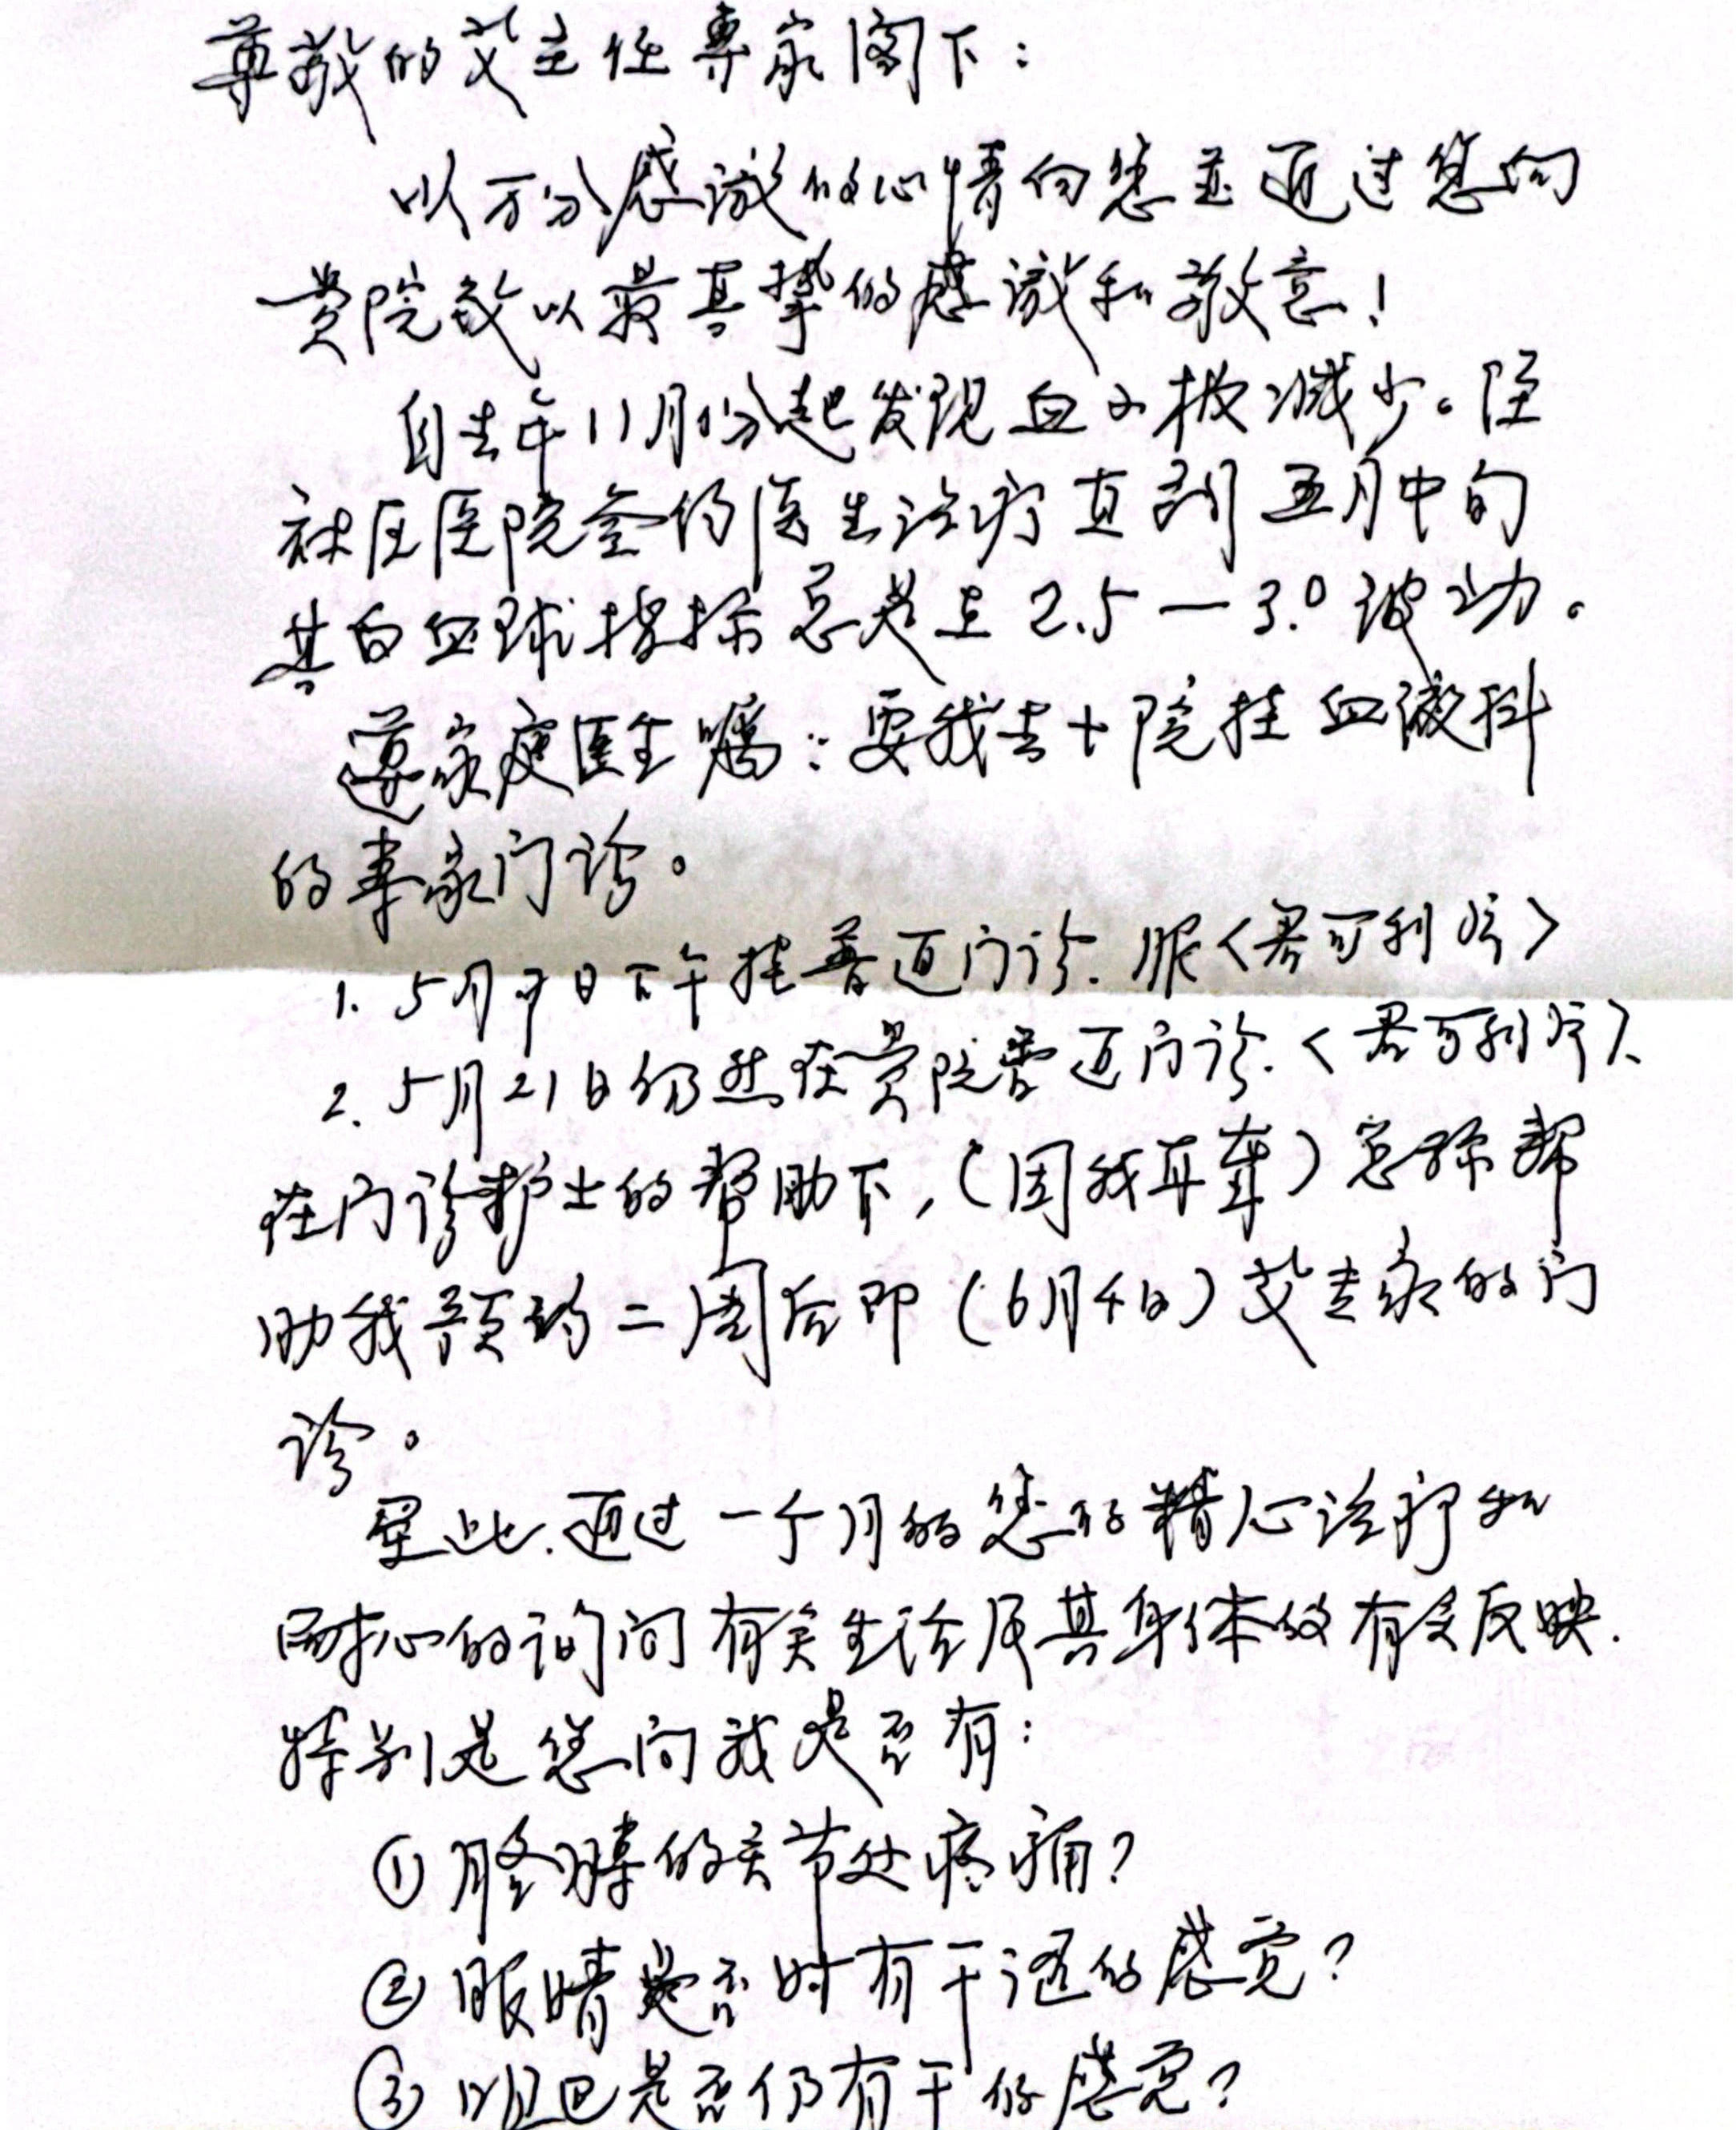 尊敬的艾主任专家阁下：
以万分感激的心情向您並通过您向
贵院致以最真挚的感激和敬意！
自去年11月份起发现血小板减少。经
社区医院签约医生治疗直到五月中旬
其白血球指标总是在2.5一3.0波动。
遵家庭医生嘱：要我去十院挂血液科
的专家门诊。
1. 5月7日下午挂普通门诊. 服<君可利片>
2. 5月21日仍然在贵院普通门诊.<君可利片>.
在门诊护士的帮助下，(因我耳聋)帮
助我预约二周后即(6月4日)艾专家的门
诊。
至此.通过一个月的您的精心治疗和
耐心的询问有关生活及其身体的有关反映.
特别是您问我是否有：
①膝的关节处疼痛?
②眼睛是否时有干涩的感觉?
③嘴巴是否仍有干的感觉?